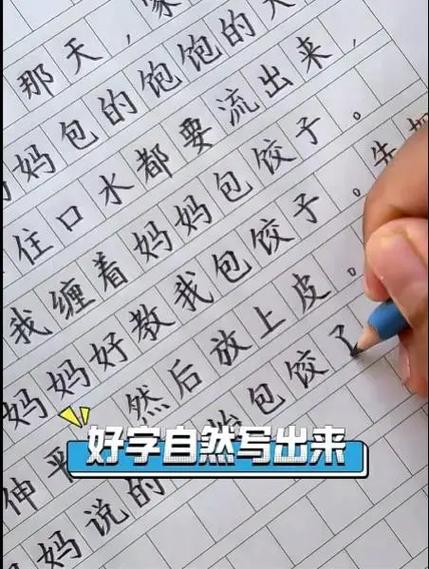 那天，家
妈包的饱饱的大
住口水都要流出来，
我缠着妈妈包饺子。
妈妈好教我包饺子。先
伸平 然后放上皮。
妈说的 始包饺了
好字自然写出来